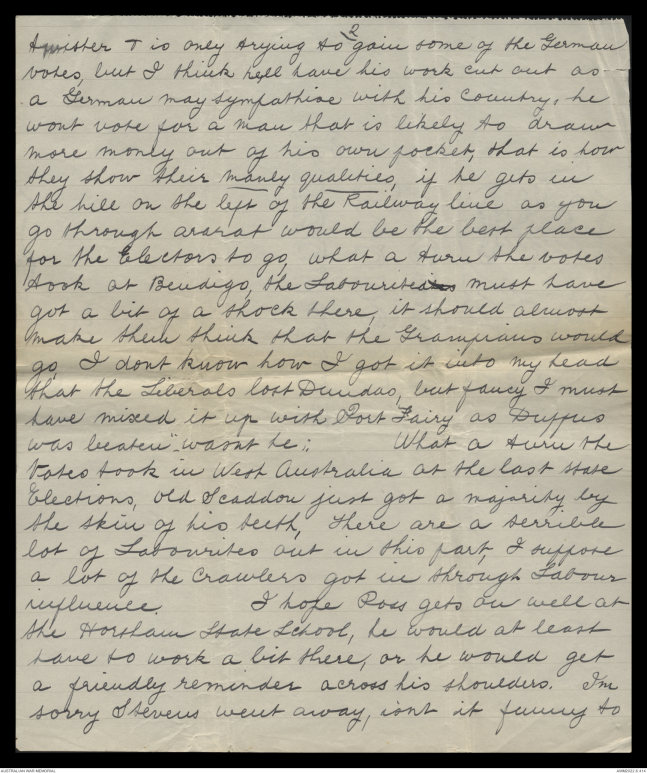 2
Amister T is only trying to gain some of the German
votes, but I think hell have his work cut out as
a German may sympathise with his country, he
wont vote for a man that is likely to draw
more money out of his own pocket, that is how
they show their manly qualities, if he gets in
the hill on the left of the Railway line as you
go through ararat would be the best place
for the Electors to go, what a turn the votes
took at Bendigo, the Labourites must have
got a bit of a shock there, it should almost
make them think that the Grampians would
go, I dont know how I got it into my head
that the Liberals lost Dundas, but fancy I must
have mixed it up with Port Fairy as Duffus
was beaten wasnt he;. What a turn the
Votes took in West Australia at the last state
Elections, old Scaddon just got a majority by
the skin of his teeth, there are a terrible
lot of Labourites out in this part, I suppose
a lot of the crawlers got in through Labour
influence. I hope Ross gets on well at
the Horsham State School, he would at least
have to work a bit there, or he would get
a friendly reminder across his shoulders. I'm
sorry Stevens went away, isnt it funny to
AUSTRALIAN WAR MEMORIAL